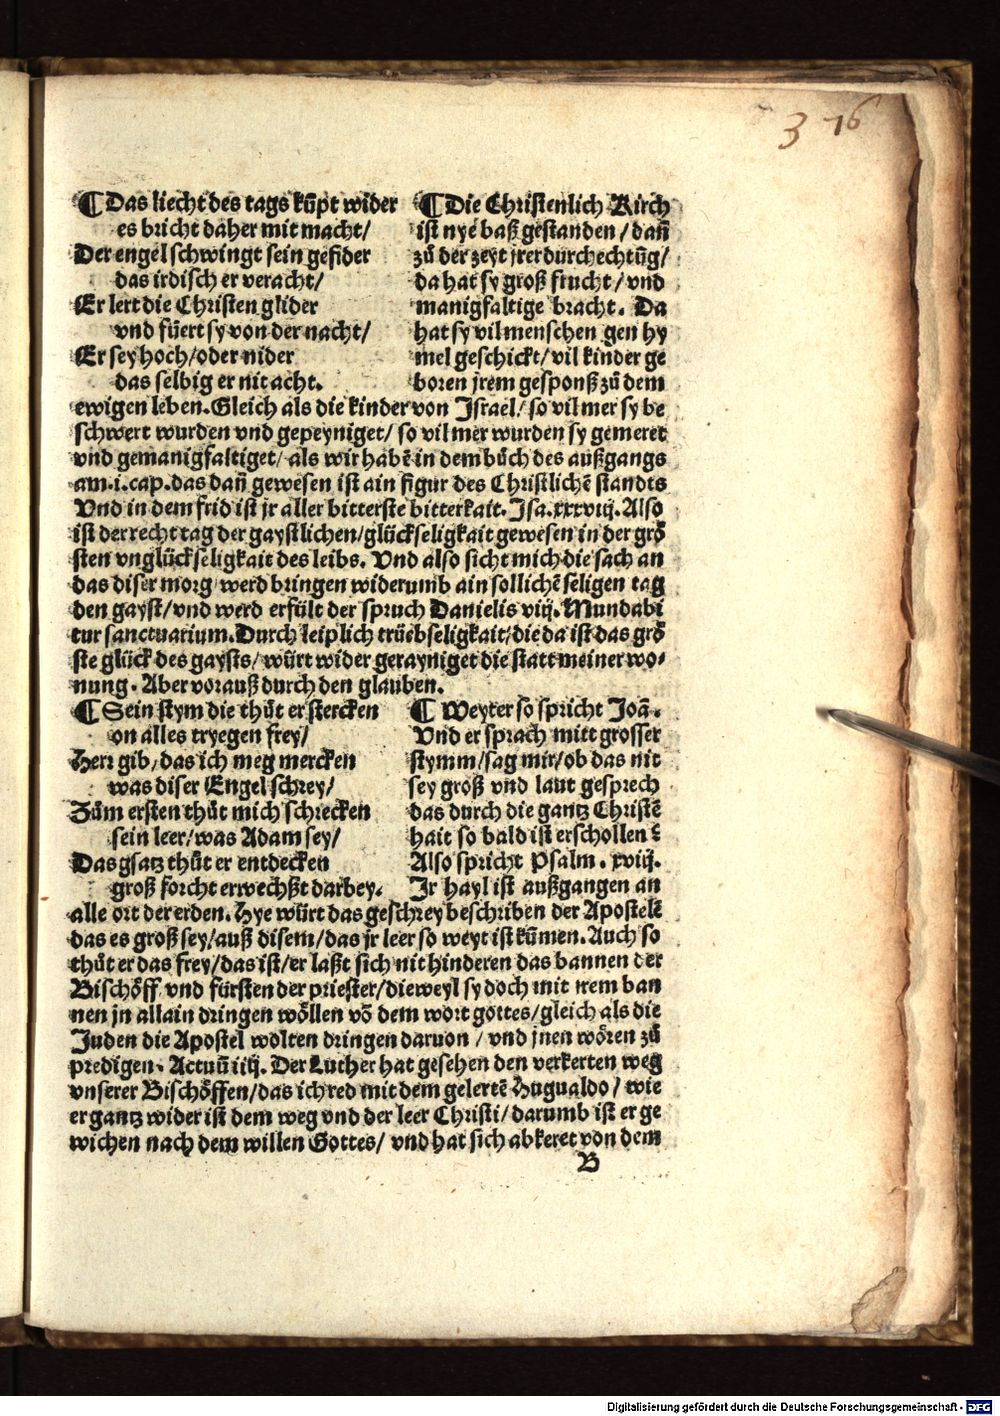 3 76
¶ Das liecht des tags kūpt wider
es bricht daher mit macht/
Der engel schwingt sein gefider
das irdisch er veracht/
Er lert die Christen glider
vnd fuͤert sy von der nacht/
Er sey hoch/oder nider
das selbig er nit acht.
¶ Die Christenlich Kirch
ist nye baß gestanden/dañ
zů der zeyt jrer durchechtūg/
da hat sy groß frucht/vnd
manigfaltige bracht. Da
hat sy vil menschen gen hy
mel geschickt/vil kinder ge
boren jrem gesponß zů dem
ewigen leben. Gleich als die kinder von Israel/so vil mer sy be
schwert wurden vnd gepeyniget/so vil mer wurden sy gemeret
vnd gemanigfaltiget/als wir habē in dem bůch des außgangs
am.i.cap.das dañ gewesen ist ain figur des Christlichē standts
Vnd in dem frid ist jr aller bitterste bitterkait. Isa.xxxviij. Also
ist der recht tag der gaystlichen/glückseligkait gewesen in der groͤ
sten vnglückseligkait des leibs. Vnd also sicht mich die sach an
das diser morg werd bringen widerumb ain sollichē seligen tag
den gayst/vnd werd erfült der spruch Danielis viij. Mundabi
tur sanctuarium. Durch leiplich truͤebseligkait/die da ist das groͤ
ste glück des gaysts/würt wider gerayniget die statt meiner wo-
nung. Aber vorauß durch den glauben.
¶ Sein stym die thůt er stercken
on alles tryegen frey/
Herr gib/das ich meg mercken
was diser Engel schrey/
Zům ersten thůt mich schrecken
sein leer/was Adam sey/
Das gsatz thůt er entdecken
groß forcht erwechßt darbey.
¶ Weyter so spricht Joā.
Vnd er sprach mitt grosser
stymm/sag mir/ob das nit
sey groß vnd laut gesprech
das durch die gantz Christē
hait so bald ist erschollen?
Also spricht Psalm. xviij.
Ir hayl ist außgangen an
alle ort der erden. Hye würt das geschrey beschriben der Apostelē
das es groß sey/auß disem/das jr leer so weyt ist kūmen. Auch so
thůt er das frey/das ist/er laßt sich nit hinderen das bannen der
Bischöff vnd fürsten der priester/dieweyl sy doch mit irem ban
nen jn allain dringen wöllen vō dem wort gottes/gleich als die
Juden die Apostel wolten dringen daruon/vnd jnen wören zů
predigen. Actuū iiij. Der Luther hat gesehen den verkerten weg
vnserer Bischöffen/das ich red mit dem gelertē Hugualdo/wie
er gantz wider ist dem weg vnd der leer Christi/darumb ist er ge
wichen nach dem willen Gottes/vnd hat sich abkeret von dem
B
Digitalisierung gefördert durch die Deutsche Forschungsgemeinschaft - DFG